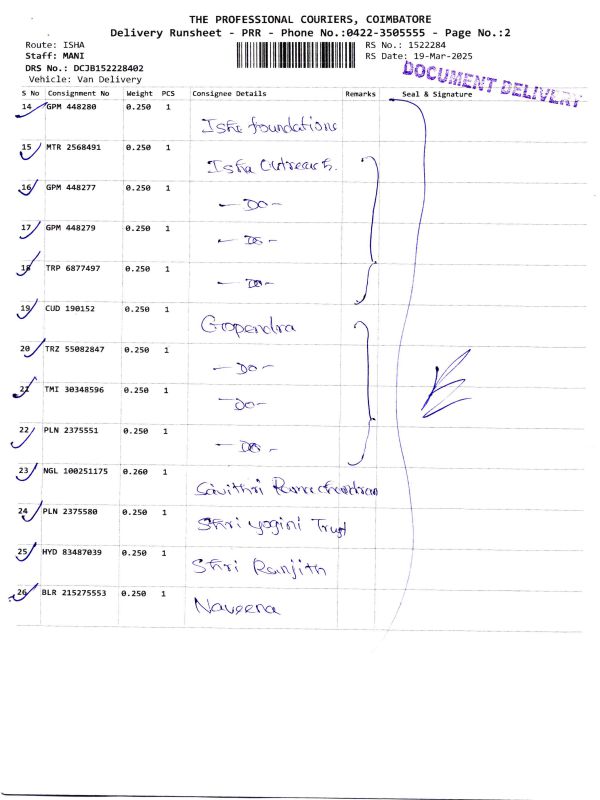 THE PROFESSIONAL COURIERS, COIMBATORE
Delivery Runsheet - PRR - Phone No.:0422-3505555 - Page No.:2
Route: ISHA RS No.: 1522284
Staff: MANI RS Date: 19-Mar-2025
DRS No.: DCJB152228402
Vehicle: Van Delivery
DOCUMENT DELIVERY
S No Consignment No Weight PCS Consignee Details Remarks Seal & Signature
14 GPM 448280 0.250 1 Isha foundations
15 MTR 2568491 0.250 1 Isha Outreach.
16 GPM 448277 0.250 1 - Do -
17 GPM 448279 0.250 1 - Do -
18 TRP 6877497 0.250 1 - Do -
19 CUD 190152 0.250 1 Gopendra
20 TRZ 55082847 0.250 1 - Do -
21 TMI 30348596 0.250 1 - Do -
22 PLN 2375551 0.250 1 - Do -
23 NGL 100251175 0.260 1 Savithri Ramachandran
24 PLN 2375580 0.250 1 Shri yogini Trust
25 HYD 83487039 0.250 1 Shri Ranjith
26 BLR 215275553 0.250 1 Naveena